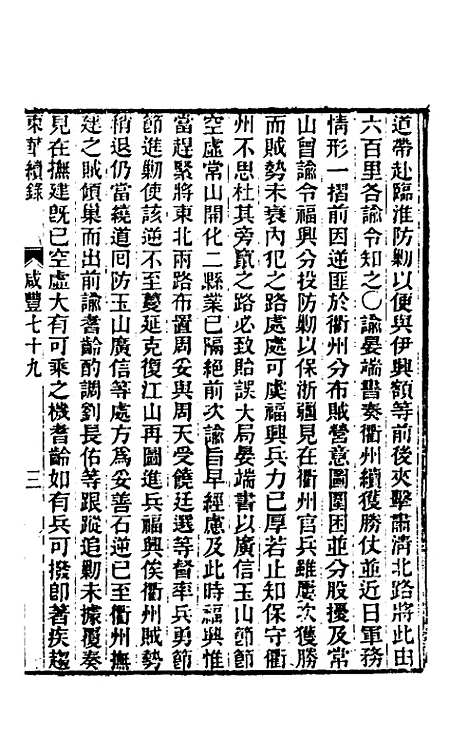 道帶赴臨淮防剿以便與伊興額等前後夾擊肅清北路將此由
六百里各諭令知之〇諭晏端書奏衢州續獲勝仗並近日軍務
情形一摺前因逆匪於衢州分布賊營意圖圍困並分股擾及常
山曾諭令福興分投防剿以保浙疆見在衢州官兵雖屢次獲勝
而賊勢未衰內犯之路處處可虞福興兵力已厚若止知保守衢
州不思杜其旁竄之路必致貽誤大局晏端書以廣信玉山節節
空虛常山開化二縣業已隔絕前次諭旨早經慮及此時福興惟
當趕緊將東北兩路布置周妥與周天受饒廷選等督率兵勇節
節進剿使該逆不至蔓延克復江山再圖進兵福興俟衢州賊勢
稍退仍當繞道回防玉山廣信等處方為妥善石逆已至衢州撫
建之賊傾巢而出前諭耆齡酌調劉長佑等跟蹤追剿未據覆奏
見在撫建既已空虛大有可乘之機耆齡如有兵可撥卽著疾趨
東華續錄　咸豐七十九　三